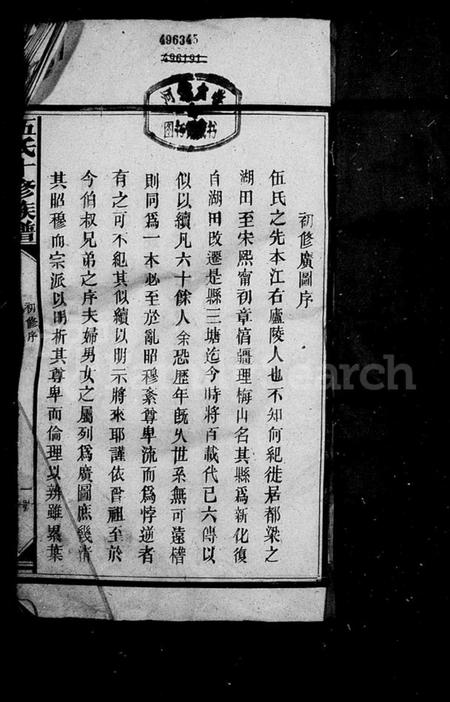 496345
496191
初修廣圖序
伍氏之先本江右廬陵人也不知何紀徙居都梁之
湖田至宋熙甯初章惇疆理梅山名其縣為新化復
自湖田改遷是縣三塘迄今時將百載代已六傳以
似以續凡六十餘人余恐歷年旣久世系無可遠稽
則同為一本必至於亂昭穆紊尊卑流而為悖逆者
有之可不紀其似續以明示將來耶謹依晉祖至於
今伯叔兄弟之序夫婦男女之屬列為廣圖庶幾清
其昭穆而宗派以明析其尊卑而倫理以辨雖累葉
伍氏修族譜
初修序